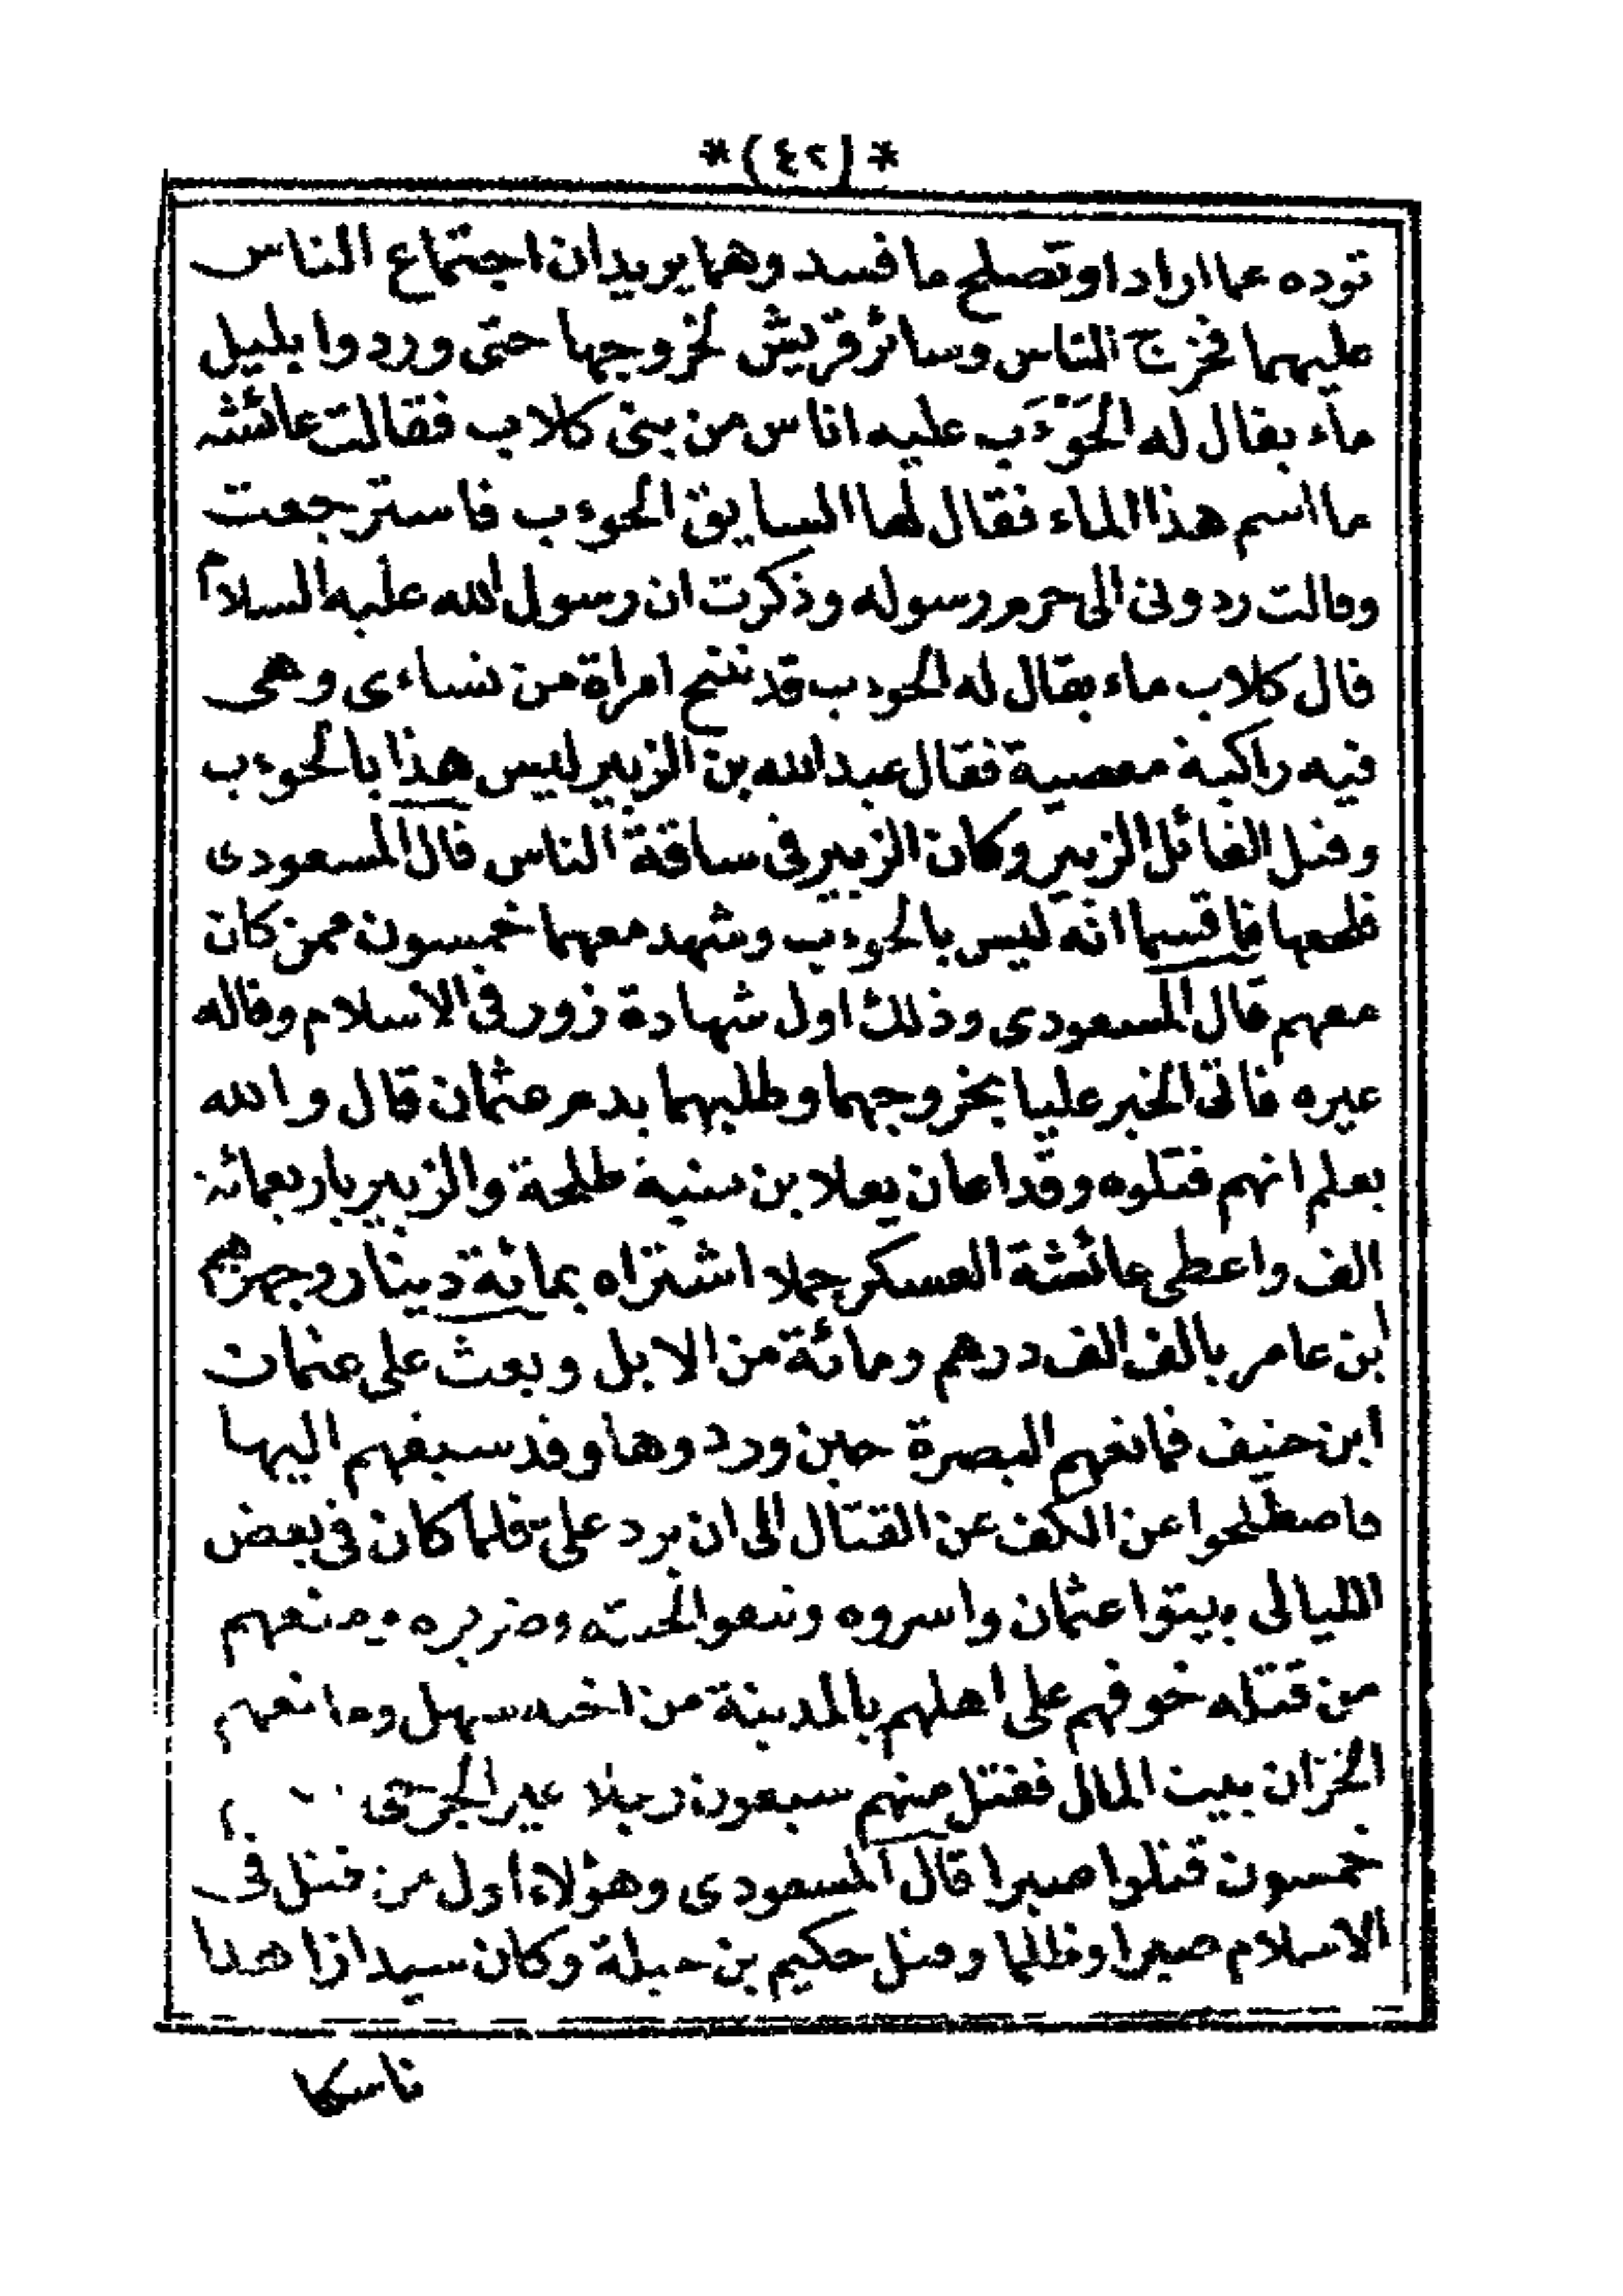 *(٤٢)*
توده عما ارادا وتصلح ما فسد وهما يريدان اجتماع الناس
عليهما فخرج الناس وسائر قريش لخروجها حتى وردوا بليل
ماء يقال له الحَوْءَب عليه اناس من بنى كلاب فقالت عائشة
ما اسم هذا الماء فقال لها السايق الحوءب فاسترجعت
وقالت ردونى الى حرم رسوله وذكرت ان رسول الله عليه السلام
قال كلاب ماء يقال له الحوءب قد تنبح امراة من نساءى وهى
فيه راكبة معصية فقال عبدالله بن الزبير ليس هذا بالحوءب
وقيل القائل الزبير وكان الزبير فى ساقة الناس قال المسعودى
فاقسما انه ليس بالحوءب وشهد معهما خمسون ممن كان
معهم قال المسعودى وذلك اول شهادة زور فى الاسلام وقاله
غيره فاتى الخبر عليا بخروجهما وطلبهما بدم عثمان قال والله
يعلم انهم قتلوه وقد اعان يعلا بن منية طلحة والزبير باربعمائة
الف واعطى عائشة العسكر جملا اشتراه بمائة دينار وجهزهم
ابن عامر بالف الف درهم ومائة من الابل وبعث على عثمان
ابن حنيف فمانعهم البصرة حين وردوها وقد سبقهم اليها
فاصطلحوا عن الكف عن القتال الى ان يرد على فلما كان فى بعض
الليالى بيتوا عثمان واسروه ونتفوا لحيته وضربوه ومنعهم
من قتله خوفهم على اهلهم بالمدينة من اخيه سهل ومانعهم
الخزان بيت المال فقتل منهم سبعون رجلا غير الجرحى
خمسون قتلوا صبرا قال المسعودى وهؤلاء اول من قتل فى
الاسلام صبرا وظلما وقتل حكيم بن جبلة وكان سيدا زاهدا
ناسكا